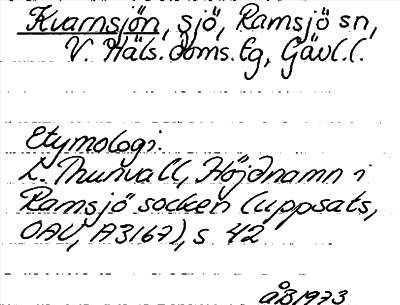 Kvarnsjön, sjö, Ramsjö sn,
V. Häls. doms. tg, Gävl. l.
Etymologi:
L. Thunvall, Höjdnamn i
Ramsjö socken (uppsats,
OAU, A3167), s 42
ÅB 1973